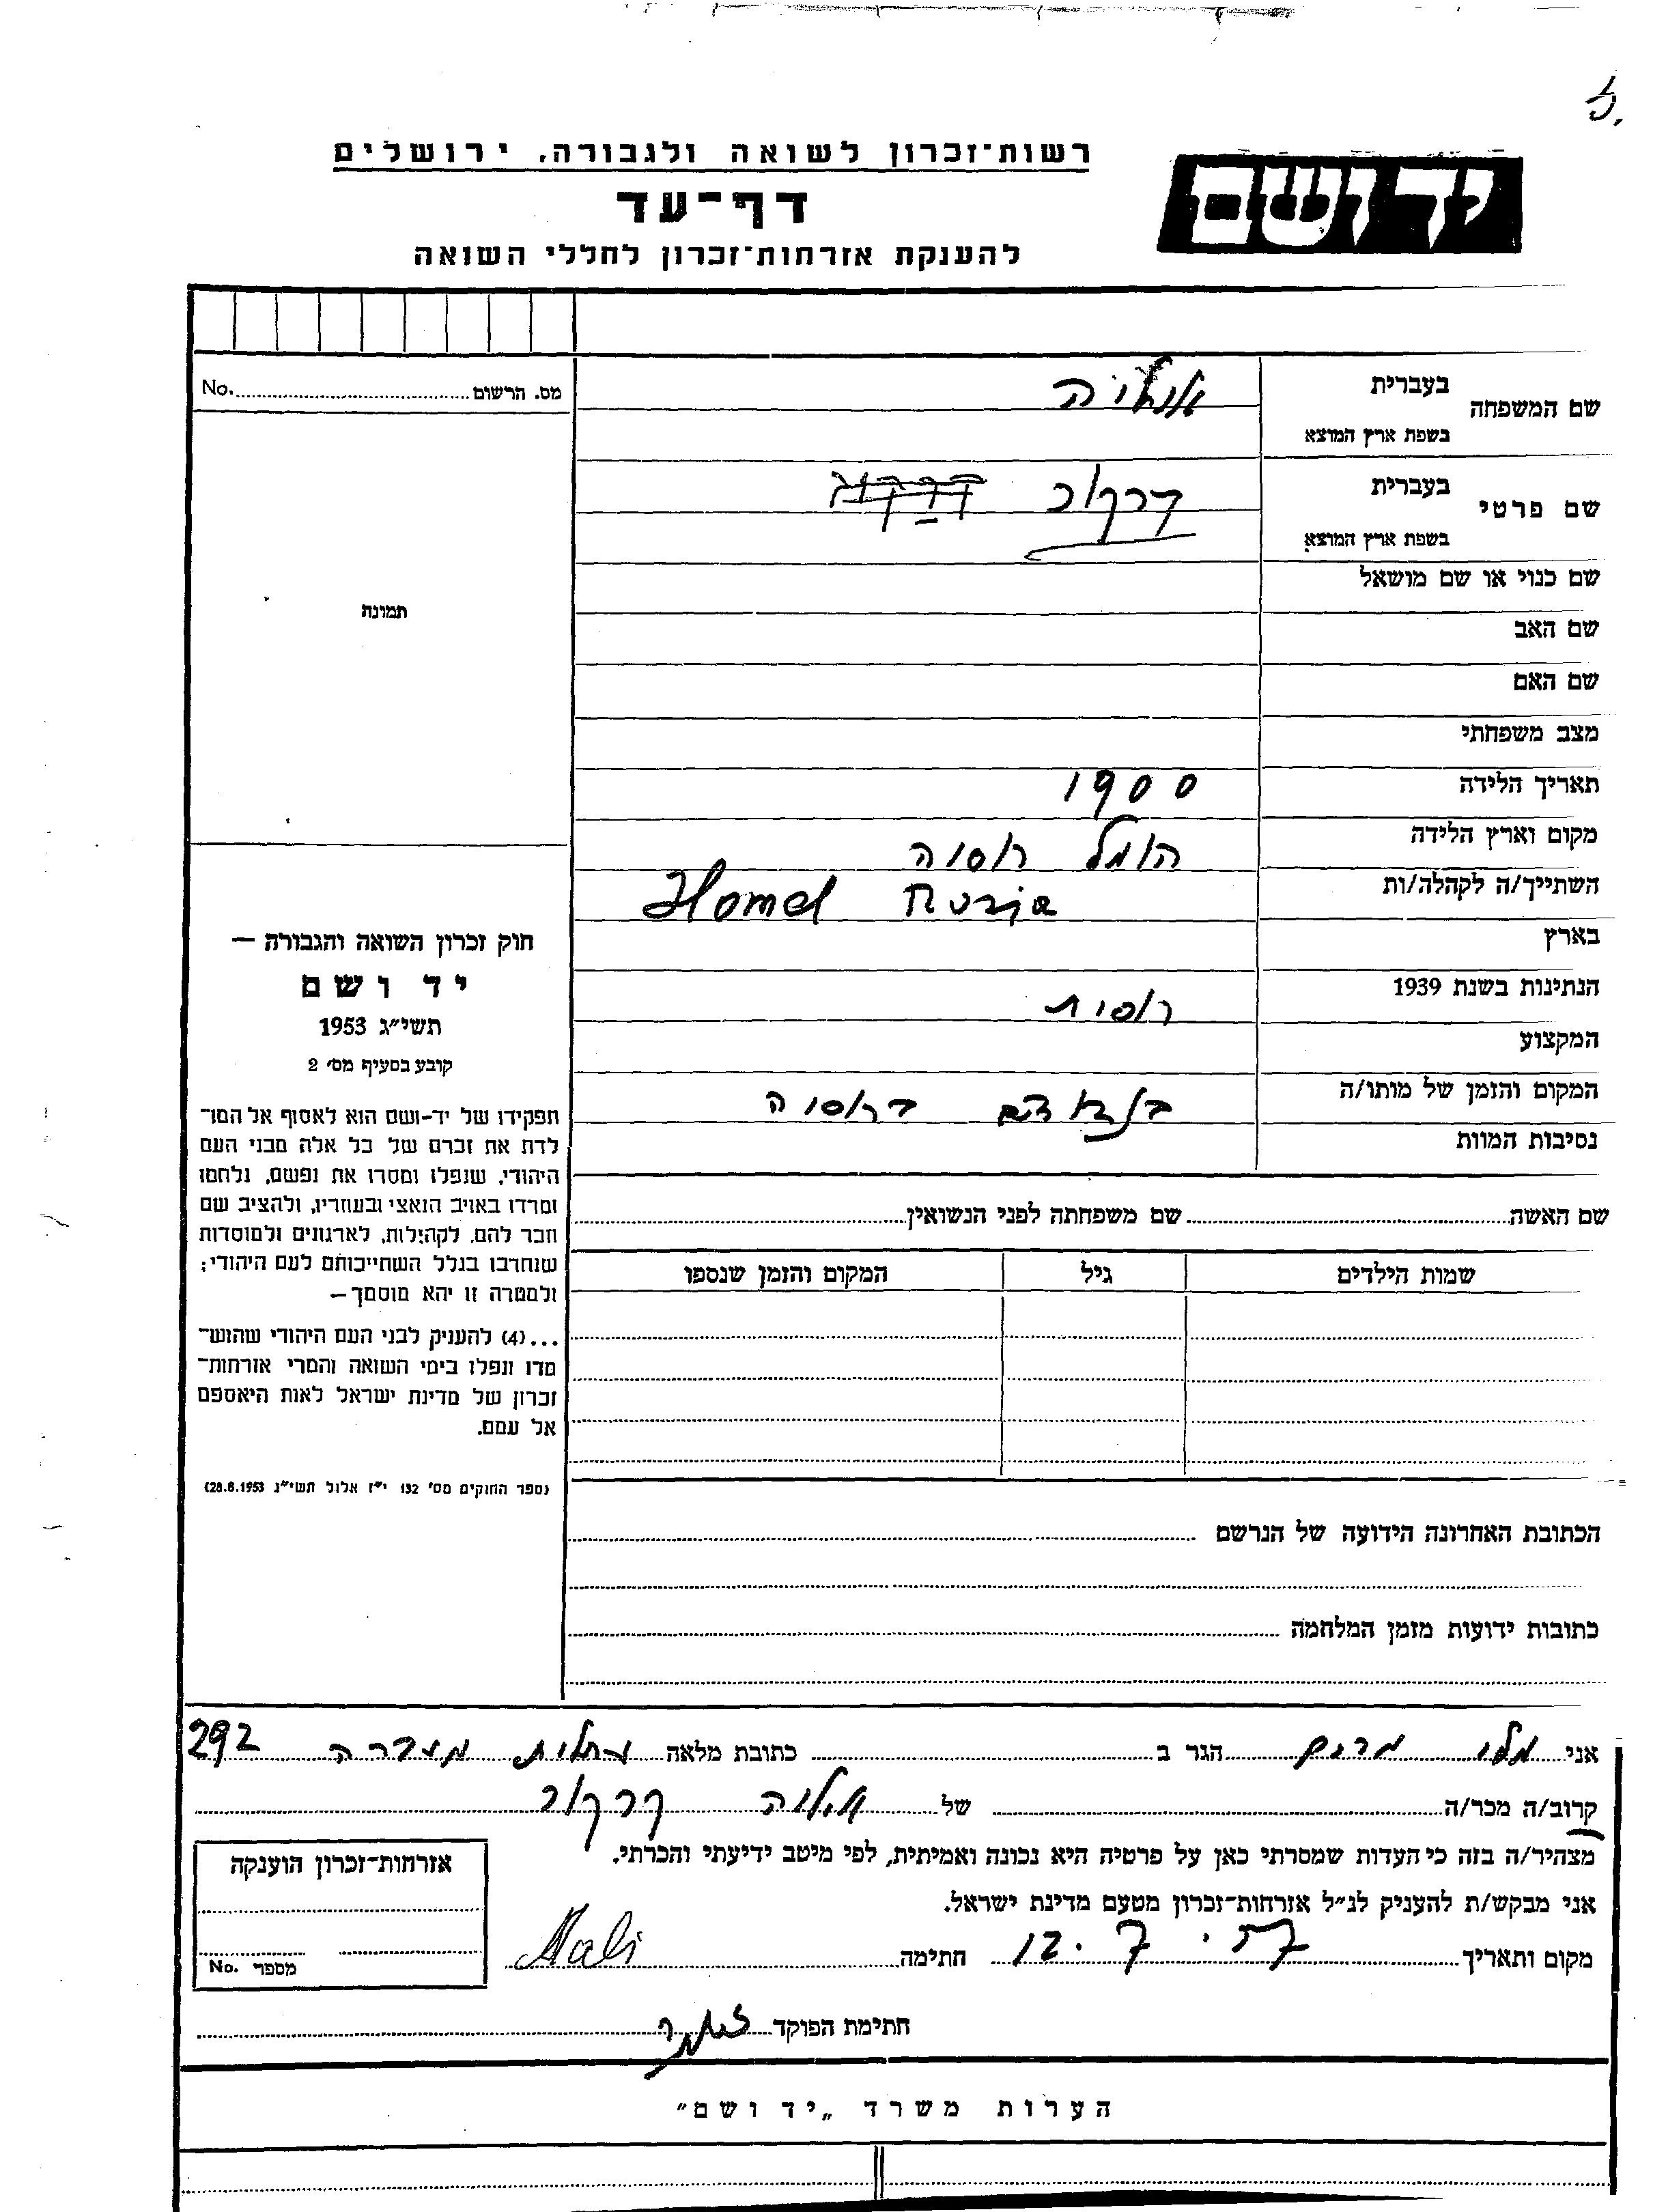 רשות־זכרון לשואה ולגבורה, ירושלים
יד ושם
דף־עד
להענקת אזרחות־זכרון לחללי השואה
מס. הרשום No.
שם המשפחה
בעברית
בשפת ארץ המוצא
שם פרטי
בעברית דרקוב
בשפת ארץ המוצא
שם כנוי או שם מושאל
תמונה
שם האב
שם האם
מצב משפחתי
תאריך הלידה 1900
מקום וארץ הלידה הומל רוסיה
השתייך/ה לקהלה/ות Homel Rusja
בארץ
הנתינות בשנת 1939 רוסית
המקצוע
המקום והזמן של מותו/ה ברוסיה
נסיבות המוות
חוק זכרון השואה והגבורה —
יד ושם
תשי״ג 1953
קובע בסעיף מס׳ 2
תפקידו של יד-ושם הוא לאסוף אל המו־
לדת את זכרם של כל אלה מבני העם
היהודי, שנפלו ומסרו את נפשם, נלחמו
ומרדו באויב הנאצי ובעוזריו, ולהציב שם
וזכר להם, לקהילות, לארגונים ולמוסדות
שנחרבו בגלל השתייכותם לעם היהודי;
ולמטרה זו יהא מוסמך —
...(4) להעניק לבני העם היהודי שהוש־
מדו ונפלו בימי השואה והמרי אזרחות־
זכרון של מדינת ישראל לאות היאספם
אל עמם.
(ספר החוקים מס׳ 132 י״ז אלול תשי״ג 28.8.1953)
שם האשה שם משפחתה לפני הנשואין
שמות הילדים גיל המקום והזמן שנספו
הכתובת האחרונה הידועה של הנרשם
כתובות ידועות מזמן המלחמה
אני מלי מרים הגר ב כתובת מלאה עתלית 292
קרוב/ה מכר/ה של
מצהיר/ה בזה כי העדות שמסרתי כאן על פרטיה היא נכונה ואמיתית, לפי מיטב ידיעתי והכרתי.
אני מבקש/ת להעניק לנ״ל אזרחות־זכרון מטעם מדינת ישראל.
מקום ותאריך 12.7. חתימה Mali
חתימת הפוקד
אזרחות־זכרון הוענקה
מספר No.
הערות משרד „יד ושם״